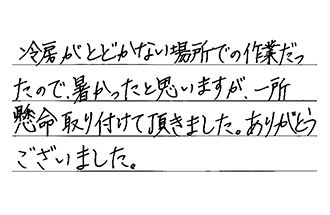 冷房がとどかない場所での作業だっ
たので、暑かったと思いますが、一所
懸命取り付けて頂きました。ありがとう
ございました。